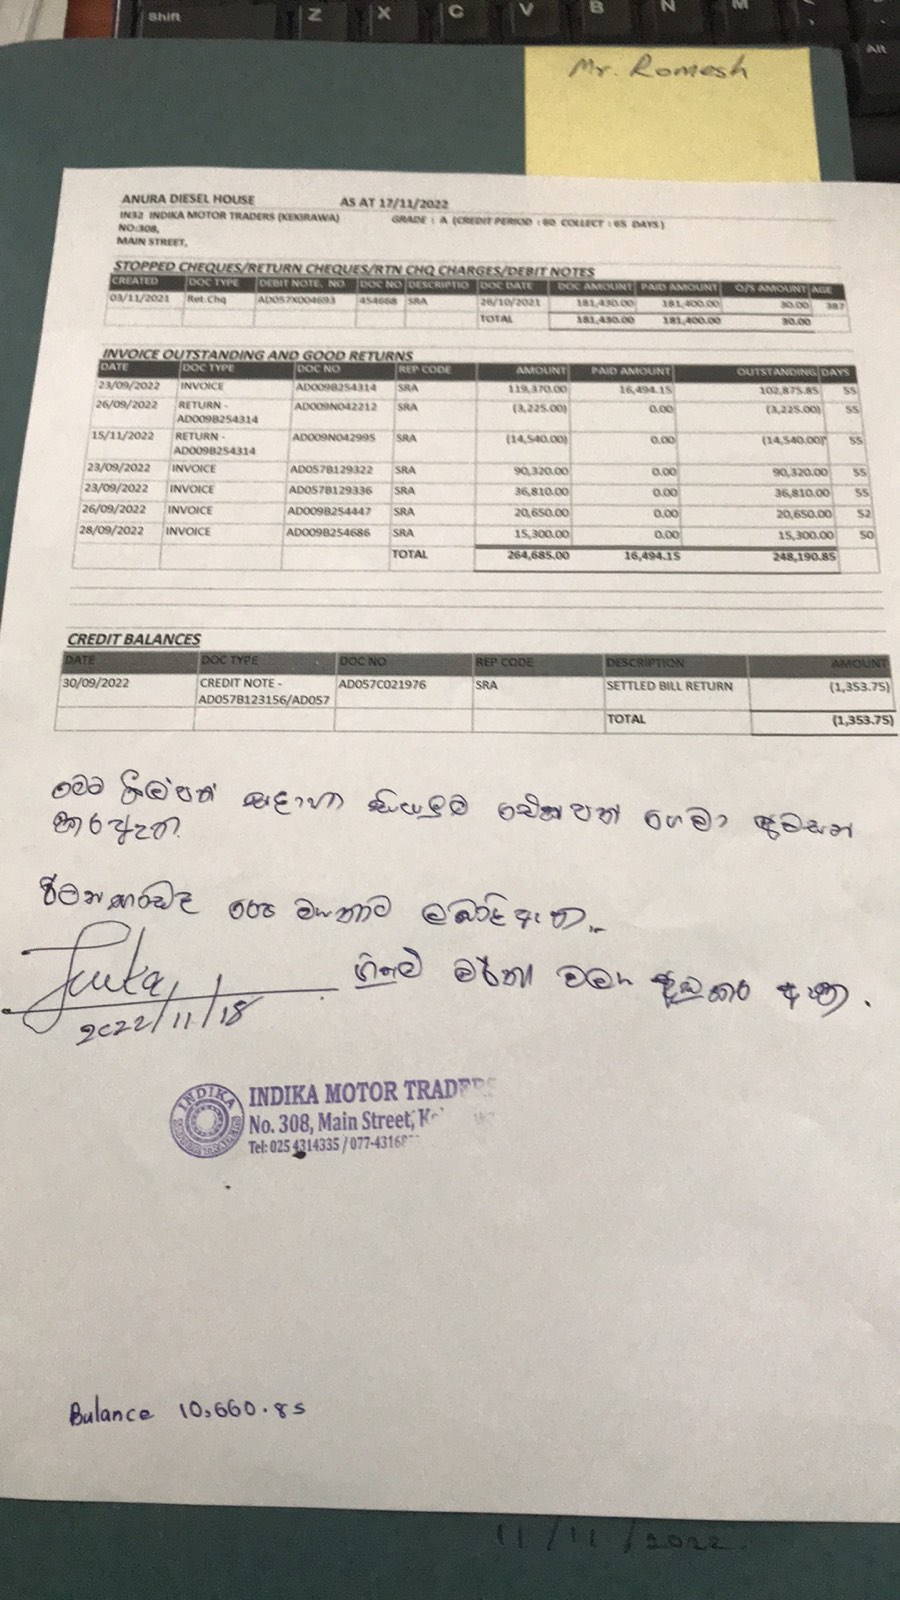 Shift Z X C V B N M
Alt
Mr. Romesh
ANURA DIESEL HOUSE AS AT 17/11/2022
IN32 INDIKA MOTOR TRADERS (KEKIRAWA) GRADE : A (CREDIT PERIOD : 60 COLLECT : 65 DAYS)
NO:308,
MAIN STREET,
STOPPED CHEQUES/RETURN CHEQUES/RTN CHQ CHARGES/DEBIT NOTES
CREATED DOC TYPE DEBIT NOTE. NO DOC NO DESCRIPTIO DOC DATE DOC AMOUNT PAID AMOUNT O/S AMOUNT AGE
03/11/2021 Ret.Chq AD057X004693 454668 SRA 26/10/2021 181,430.00 181,400.00 30.00 387
TOTAL 181,430.00 181,400.00 30.00
INVOICE OUTSTANDING AND GOOD RETURNS
DATE DOC TYPE DOC NO REP CODE AMOUNT PAID AMOUNT OUTSTANDING DAYS
23/09/2022 INVOICE AD009B254314 SRA 119,370.00 16,494.15 102,875.85 55
26/09/2022 RETURN - AD009N042212 SRA (3,225.00) 0.00 (3,225.00) 55
AD009B254314
15/11/2022 RETURN - AD009N042995 SRA (14,540.00) 0.00 (14,540.00) 55
AD009B254314
23/09/2022 INVOICE AD057B129322 SRA 90,320.00 0.00 90,320.00 55
23/09/2022 INVOICE AD057B129336 SRA 36,810.00 0.00 36,810.00 55
26/09/2022 INVOICE AD009B254447 SRA 20,650.00 0.00 20,650.00 52
28/09/2022 INVOICE AD009B254686 SRA 15,300.00 0.00 15,300.00 50
TOTAL 264,685.00 16,494.15 248,190.85
CREDIT BALANCES
DATE DOC TYPE DOC NO REP CODE DESCRIPTION AMOUNT
30/09/2022 CREDIT NOTE - AD057C021976 SRA SETTLED BILL RETURN (1,353.75)
AD057B123156/AD057
TOTAL (1,353.75)
මෙම බිල්පත් සඳහා සියලුම චෙක්පත් ගෙවා අවසන්
කර ඇත.
රෙප් මහතාට ලබාදී ඇත.
කර ඇත.
2022/11/18
INDIKA
INDIKA MOTOR TRADERS
No. 308, Main Street,
Tel: 025 4314335 / 077-4316
Balance 10,660.85
11/11/2022